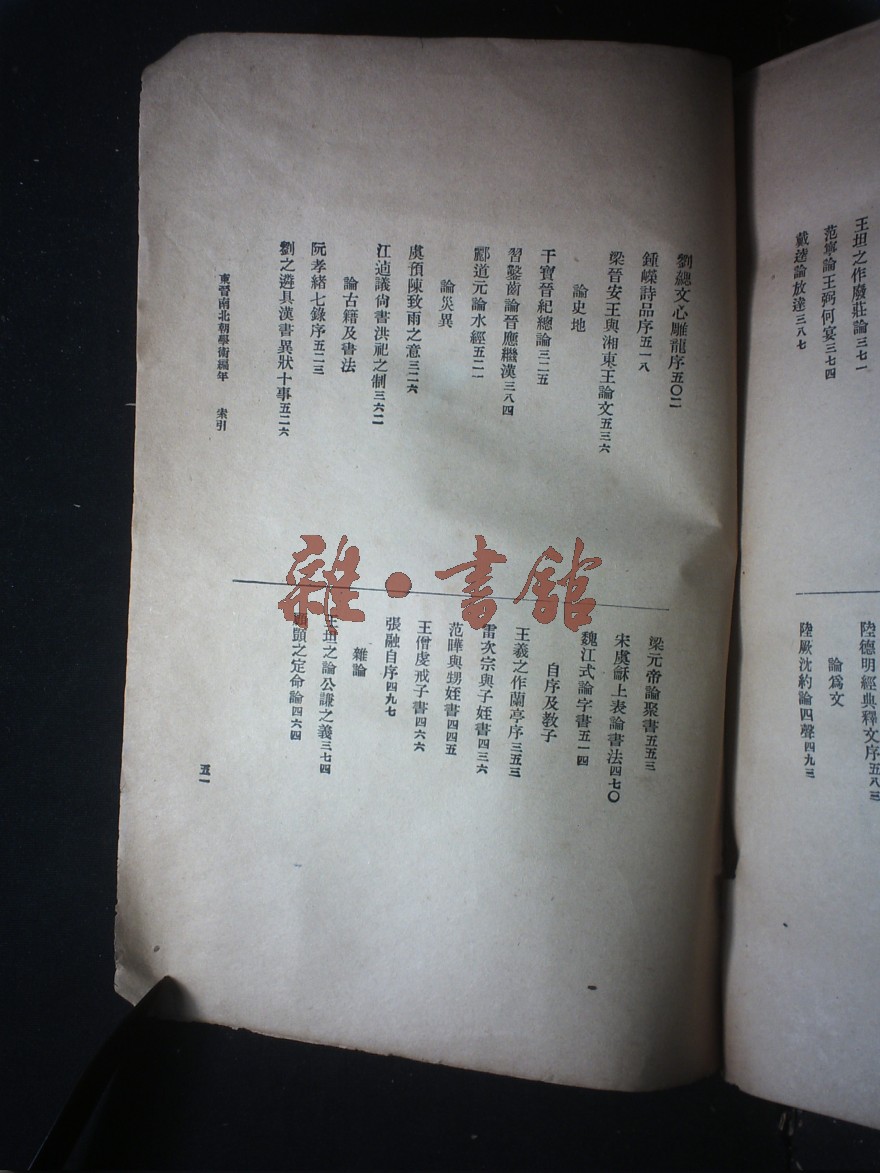 王坦之作廢莊論三七一
范寧論王弼何宴三七四
戴逵論放達三八七
陸德明經典釋文序五八三
論爲文
陸厥沈約論四聲四九三
劉勰文心雕龍序五〇二
鍾嶸詩品序五一八
梁晉安王與湘東王論文五三六
論史地
干寶晉紀總論三二五
習鑿齒論晉應繼漢三八四
酈道元論水經五二一
論災異
虞預陳致雨之意三二六
江逌議尙書洪祀之制三六二
論古籍及書法
阮孝緒七錄序五二三
劉之遴具漢書異狀十事五二六
梁元帝論聚書五五三
宋虞龢上表論書法四七〇
魏江式論字書五一四
自序及教子
王羲之作蘭亭序三五三
雷次宗與子姪書四三六
范曄與甥姪書四四五
王僧虔戒子書四六六
張融自序四九七
雜論
王坦之論公謙之義三七四
顗之定命論四六四
東晉南北朝學術編年 索引
五一
雜·書館